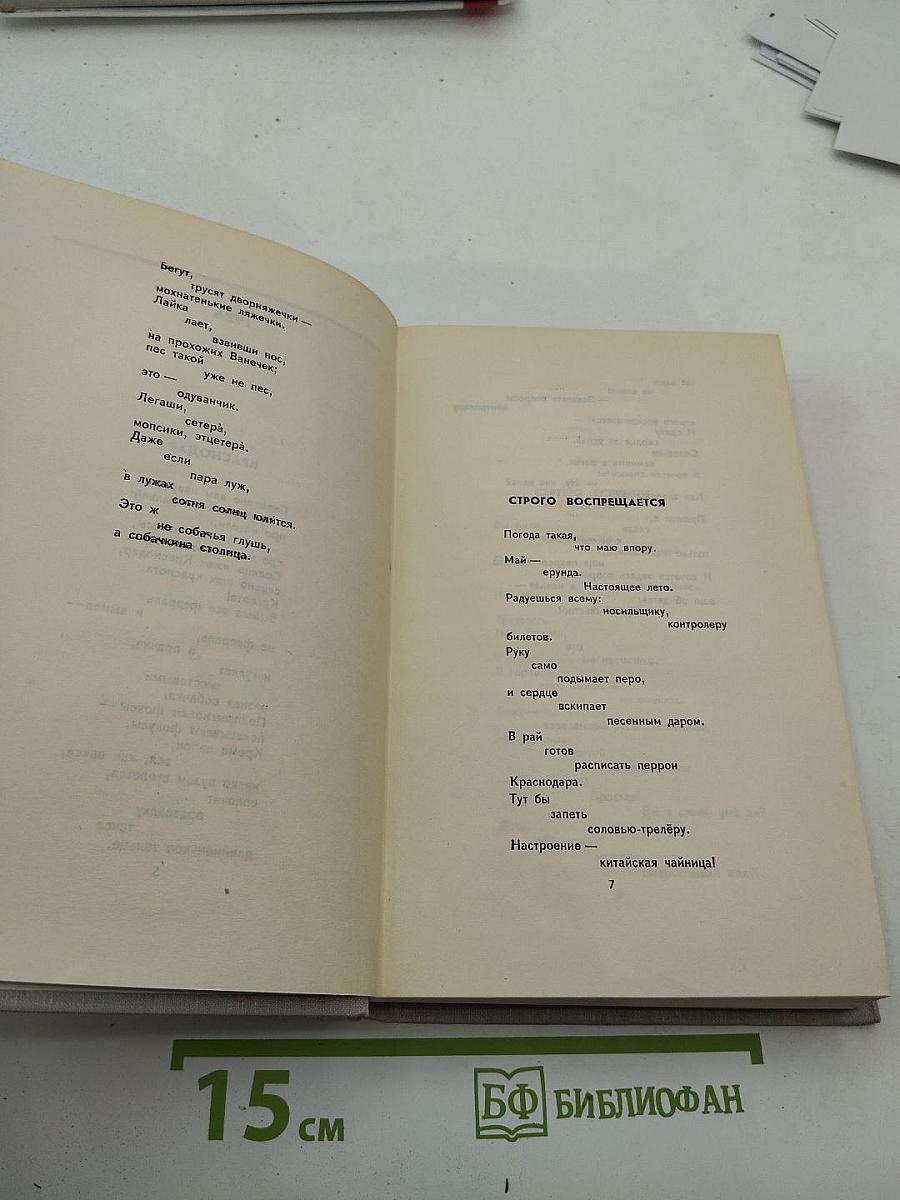 Бегут,
трусят дворняжечки —
мохнатенькие ляжечки.
Лайка
лает,
взвивши нос,
на прохожих Ванечек;
пес такой
уже не пес,
это —
одуванчик.
Легаши,
сетера̀,
мопсики, этцетера̀.
Даже
если
пара луж,
в лужах
сотня солнц юлится.
Это ж
не собачья глушь,
а собачкина столица.
СТРОГО ВОСПРЕЩАЕТСЯ
Погода такая,
что маю впору.
Май —
ерунда.
Настоящее лето.
Радуешься всему:
носильщику,
контролеру
билетов.
Руку
само
подымает перо,
и сердце
вскипает
песенным даром.
В рай
готов
расписать перрон
Краснодара.
Тут бы
запеть
соловью-трелёру.
Настроение —
китайская чайница!
7
15 см
БФ БИБЛИОФАН